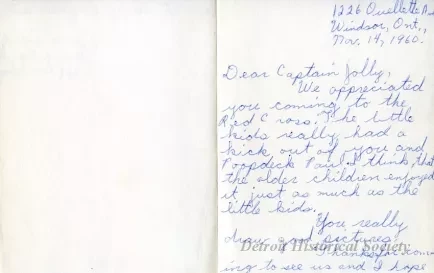 1226 Ouellette Av
Windsor, Ont.,
Nov. 14, 1960.
Dear Captain Jolly,
We appreciated
you coming to the
Red Cross. The little
kids really had a
kick out of you and
Poopdeck Paul. I think that
the older children enjoyed
it just as much as the
little kids.
You really
draw good pictures.
Detroit Historical Society
Thanks for com-
ing to see us and I hope